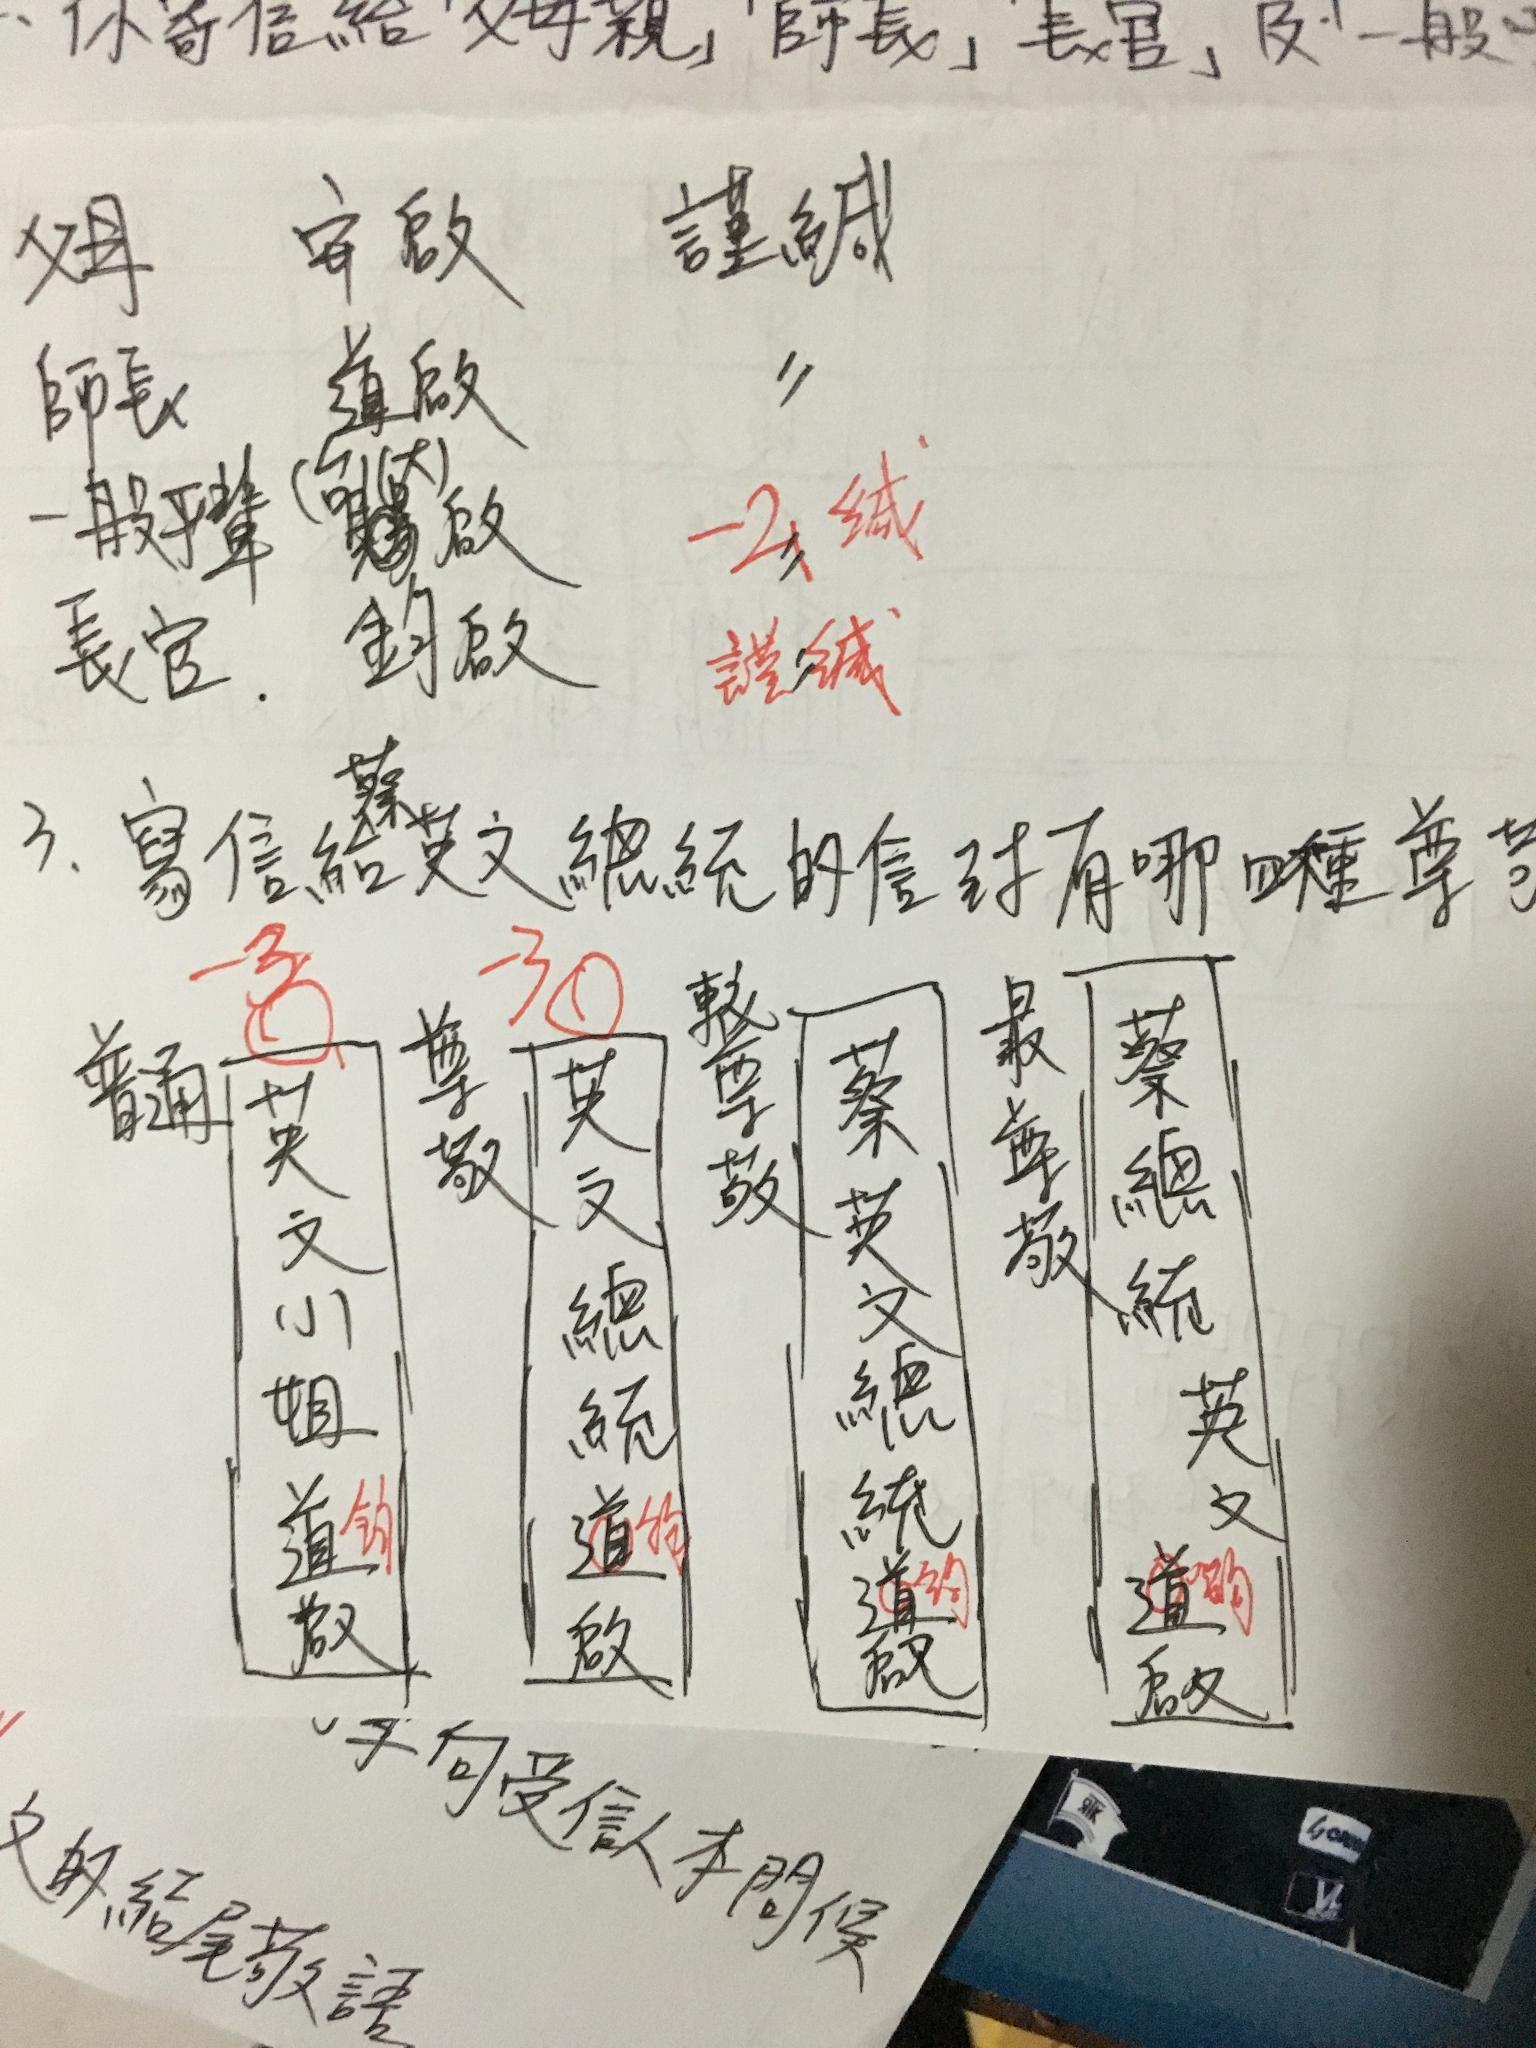 你寄信給「父母親」「師長」「長官」及「一般
父母 安啟 謹緘
師長 道啟 〃
一般平輩 (大) 啟 〃 -2 緘
長官. 鈞啟 〃 謹緘
3. 寫信給蔡英文總統的信封有哪四種尊
-3
普通
英文小姐道啟
鈞
-3 ①
尊敬
英文總統道啟
鈞
較尊敬
蔡英文總統道啟
鈞
最尊敬
蔡總統英文道啟
鈞
句受信人本問候
文的結尾敬語